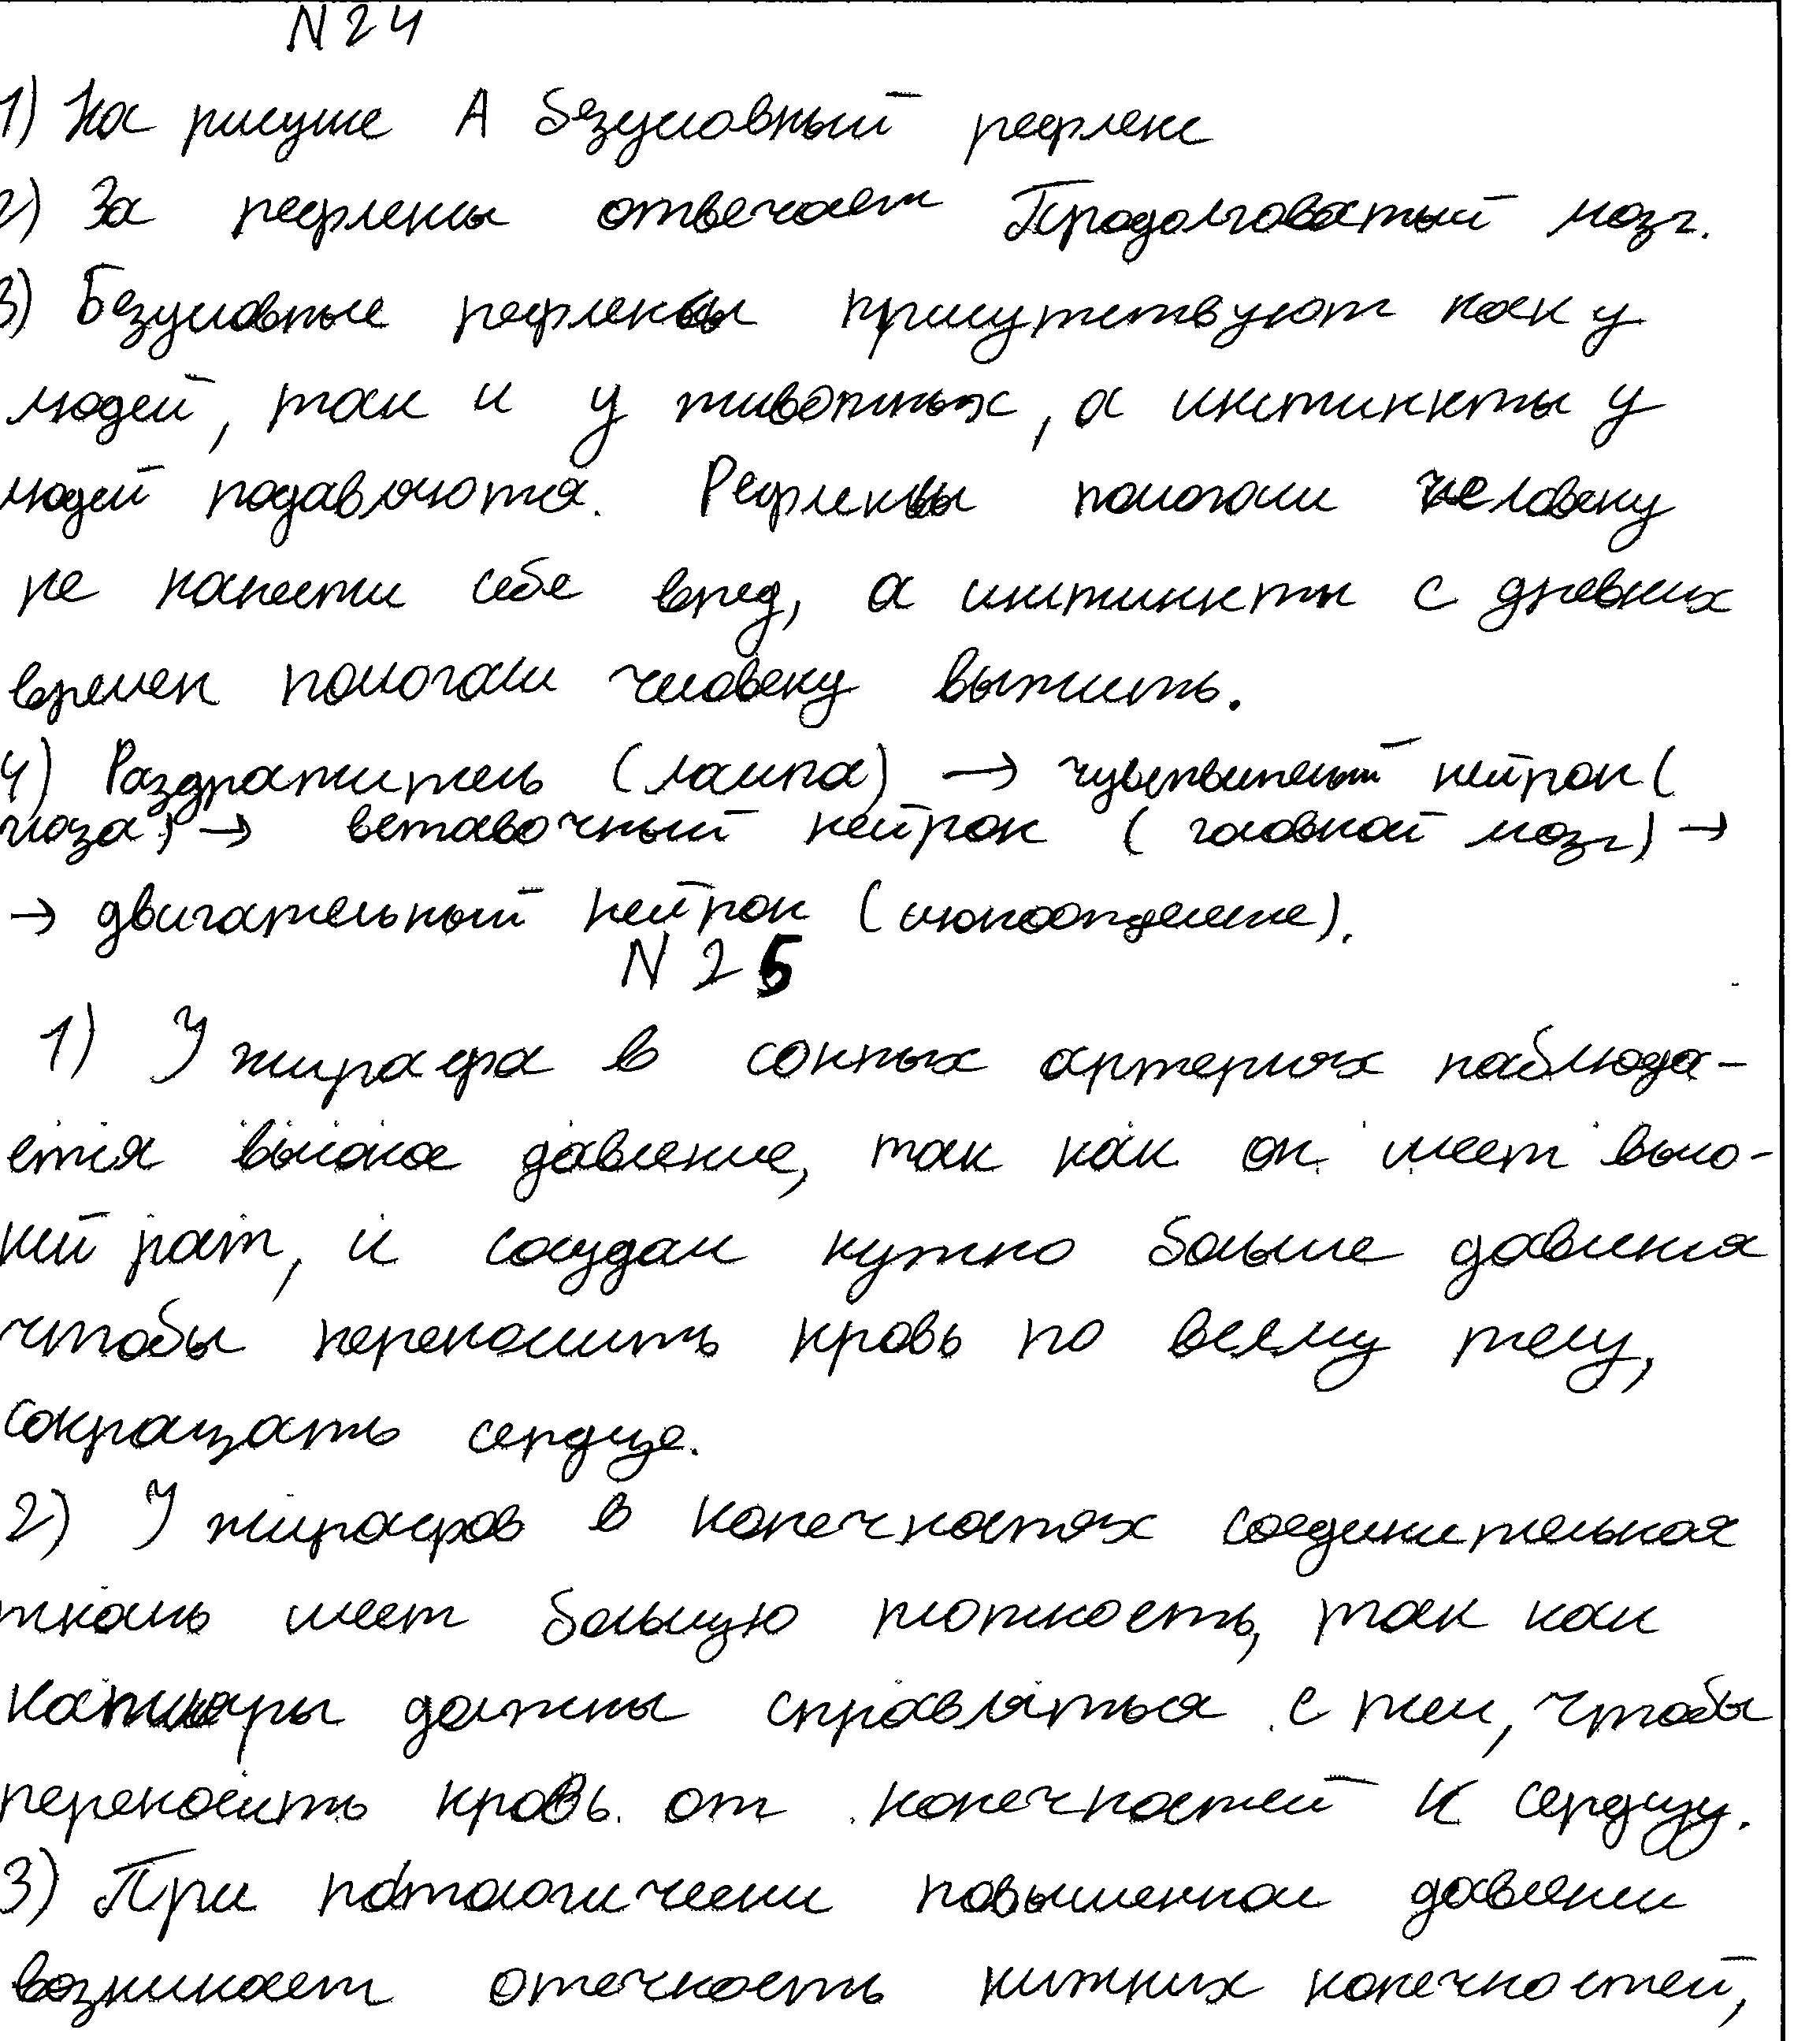 N24
1) На рисунке А безусловный рефлекс
2) За рефлексы отвечает Продолговатый мозг.
3) Безусловные рефлексы присутствуют как у
людей, так и у животных, а инстинкты у
людей подавляются. Рефлексы помогали человеку
не нанести себе вред, а инстинкты с древних
времен помогали человеку выжить.
4) Раздражитель (лампа) → чувствительный нейрон (
глаза) → вставочный нейрон (головной мозг) →
→ двигательный нейрон (слюноотделение).
N25
1) У жирафа в сонных артериях наблюда-
ется высокое давление, так как он имеет высо-
кий рост, и сосудам нужно больше давления
чтобы переносить кровь по всему телу,
сокращать сердце.
2) У жирафов в конечностях соединительная
ткань имеет большую плотность, так как
капиляры должны справляться с тем, чтобы
переносить кровь от конечностей к сердцу.
3) При патологически повышенном давлении
возникает отечность нижних конечностей,